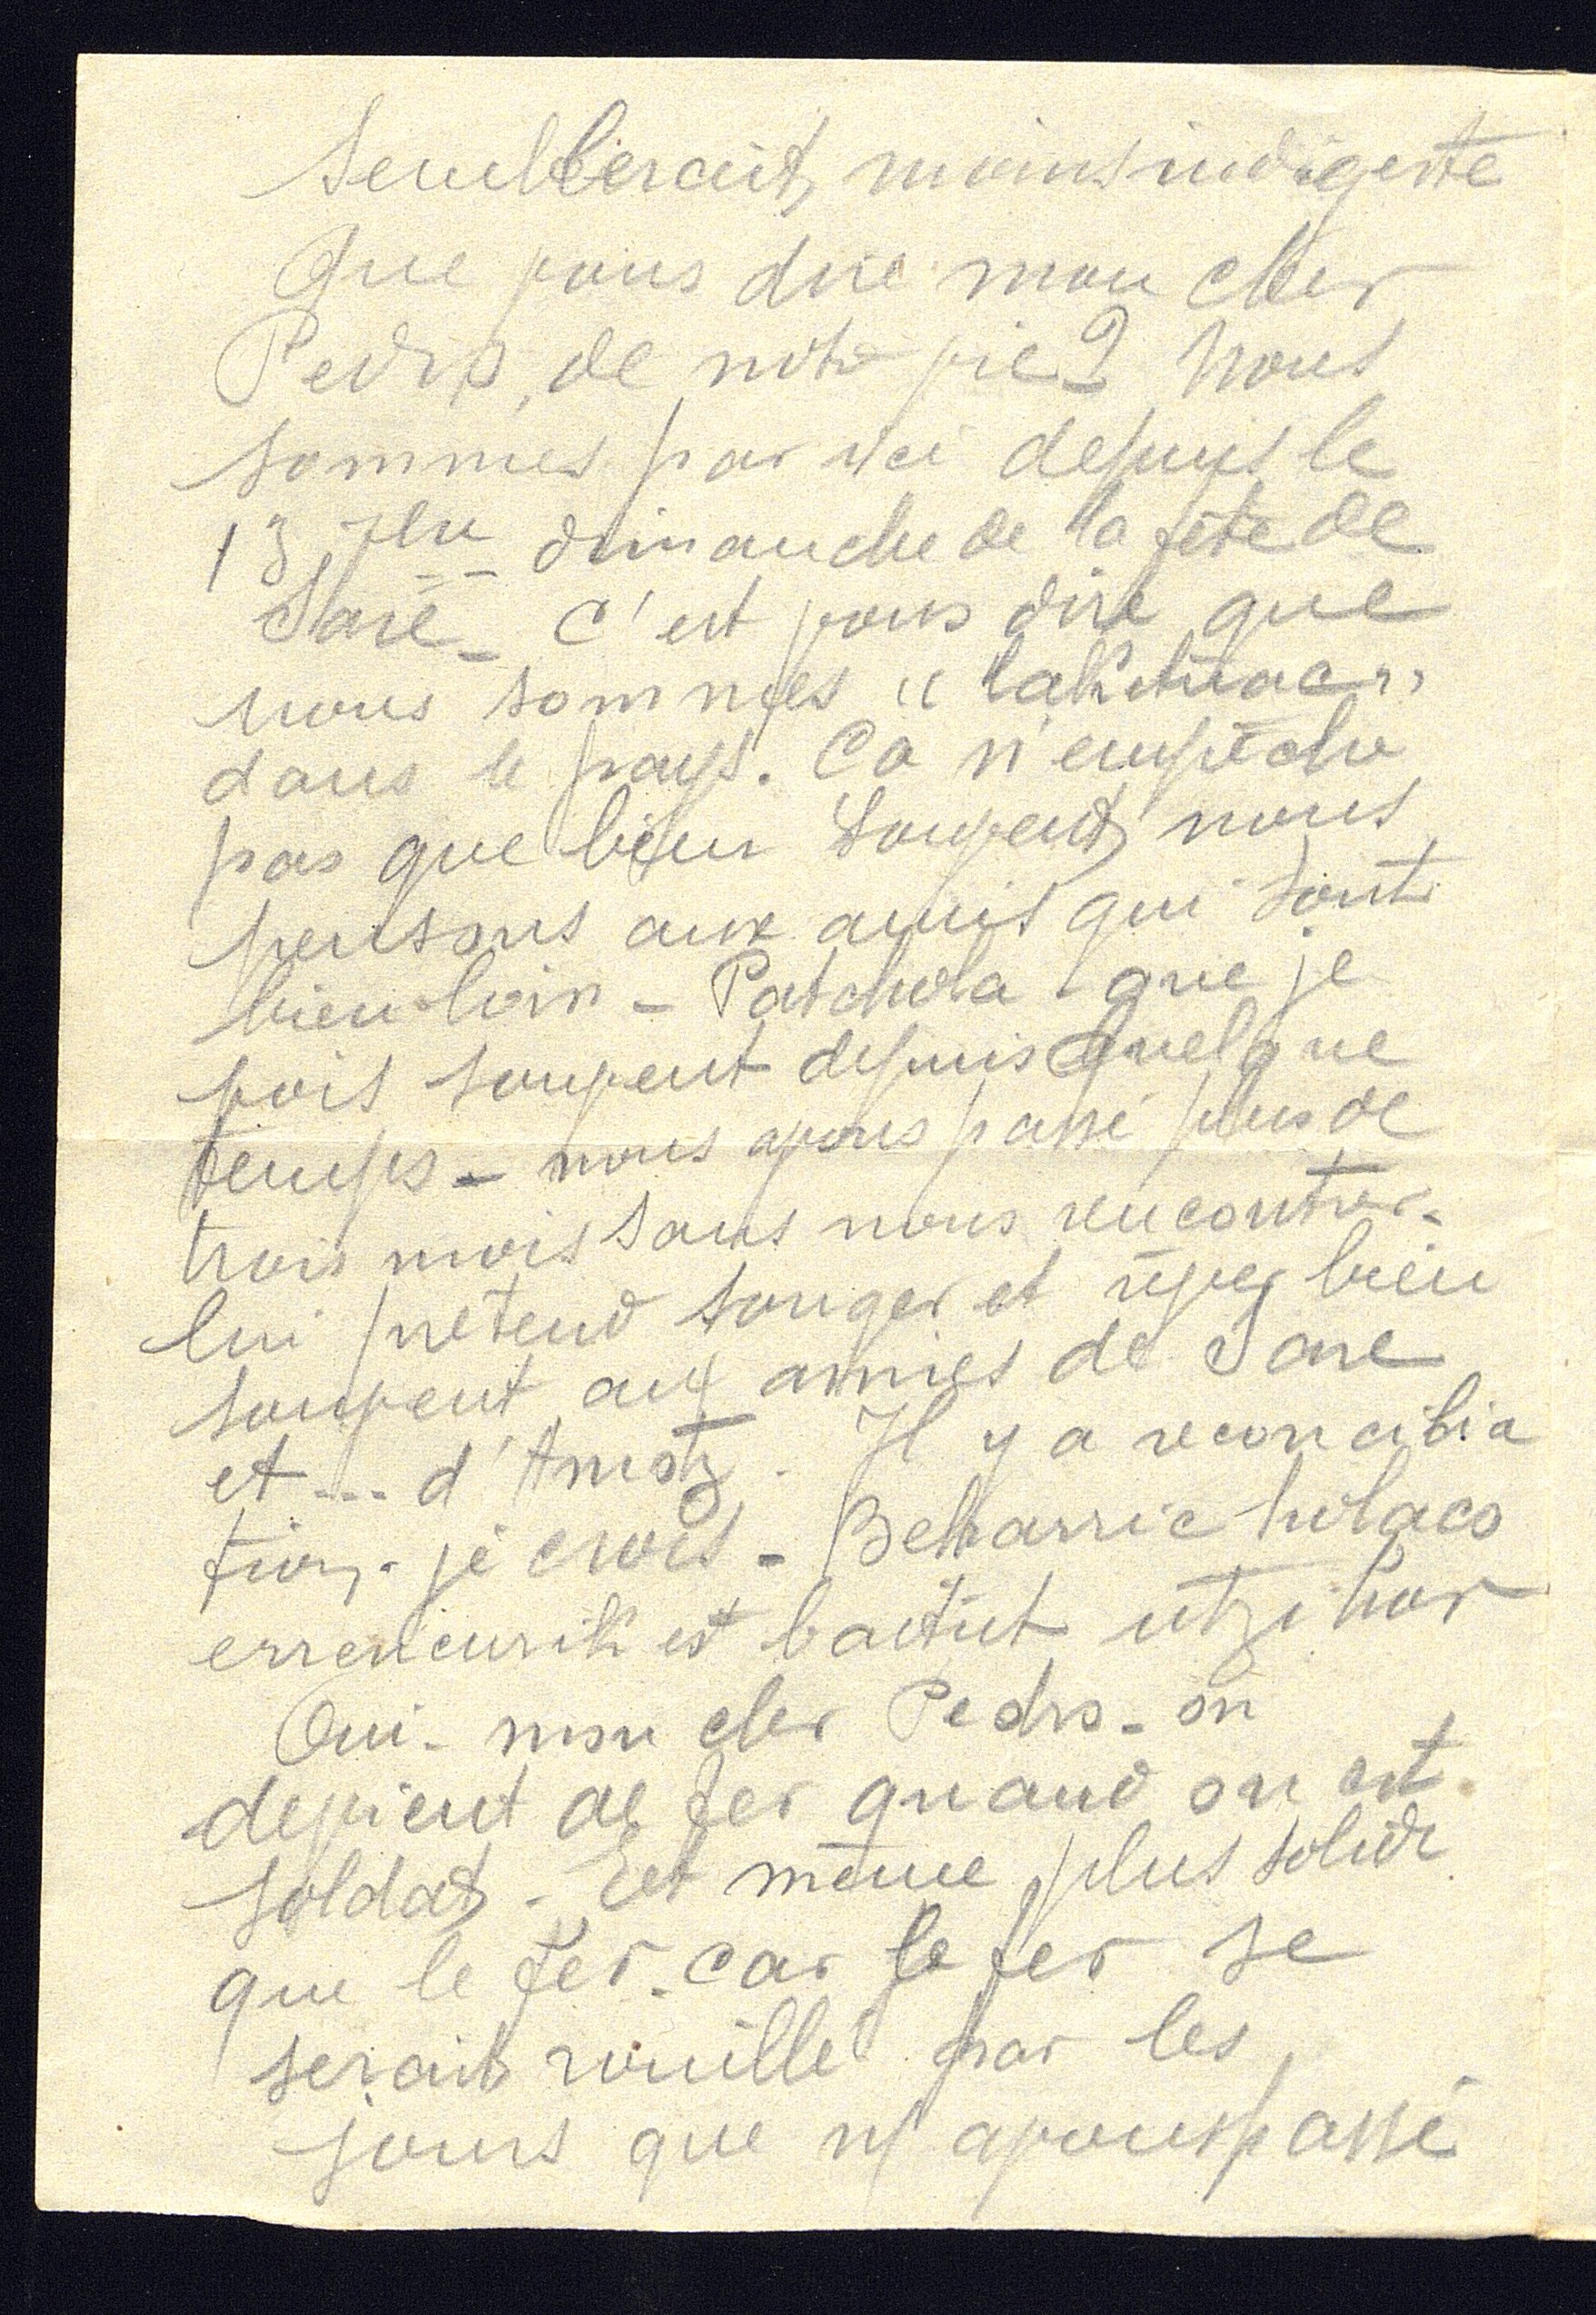 semblerait, moins indigeste
Que vous dire mon cher
Pedro, de notre vie ? Nous
sommes par ici depuis le
13 7bre dimanche de la fête de
Sare - C'est vous dire que
nous sommes " lakhetuac "
dans le pays. Ca n'empêche
pas que bien souvent, nous
pensons aux amis qui sont
bien loin - Patchola - que je
vois souvent depuis quelque
temps - nous avons passé plus de
trois mois sans nous rencontrer -
lui prétend songer et rêver bien
souvent aux amies de Sare
et ... d'Amotz . Il y a reconcilia
tion - je crois - Beharric holaco
erreneurik ez baitut utzi hor
Oui - mon cher Pedro - on
devient de fer quand on est
soldat - Et même plus solide
que le fer - car le fer se
serait rouillé par les
jours que ns avons passé